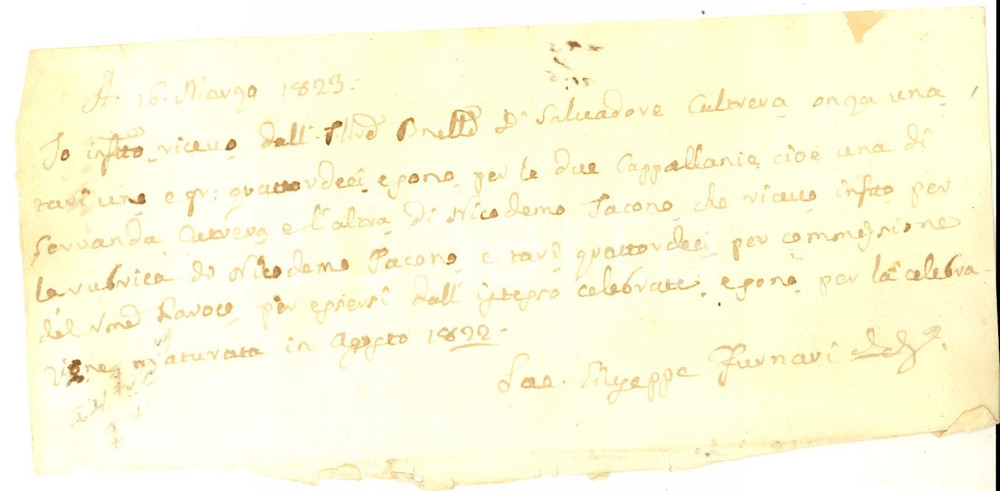 A. 16. Marzo 1823:
Io inftto ricevo dall' D. Salvadore Cultrera onza una
tarì uno e gr: quattordeci, e sono per le due Cappellanie, cioè una di
Servanda Cutrera e l'altra di Nicodemo Iacono, che ricevo inftto per
la rubrica di Nicodemo Iacono e tarì quattordeci per commissione
del Parroco, per essersi dall' istesso celebrate, e sono per la celebra-
zione maturata in Agosto 1822.
Sac. Giuseppe Furnari